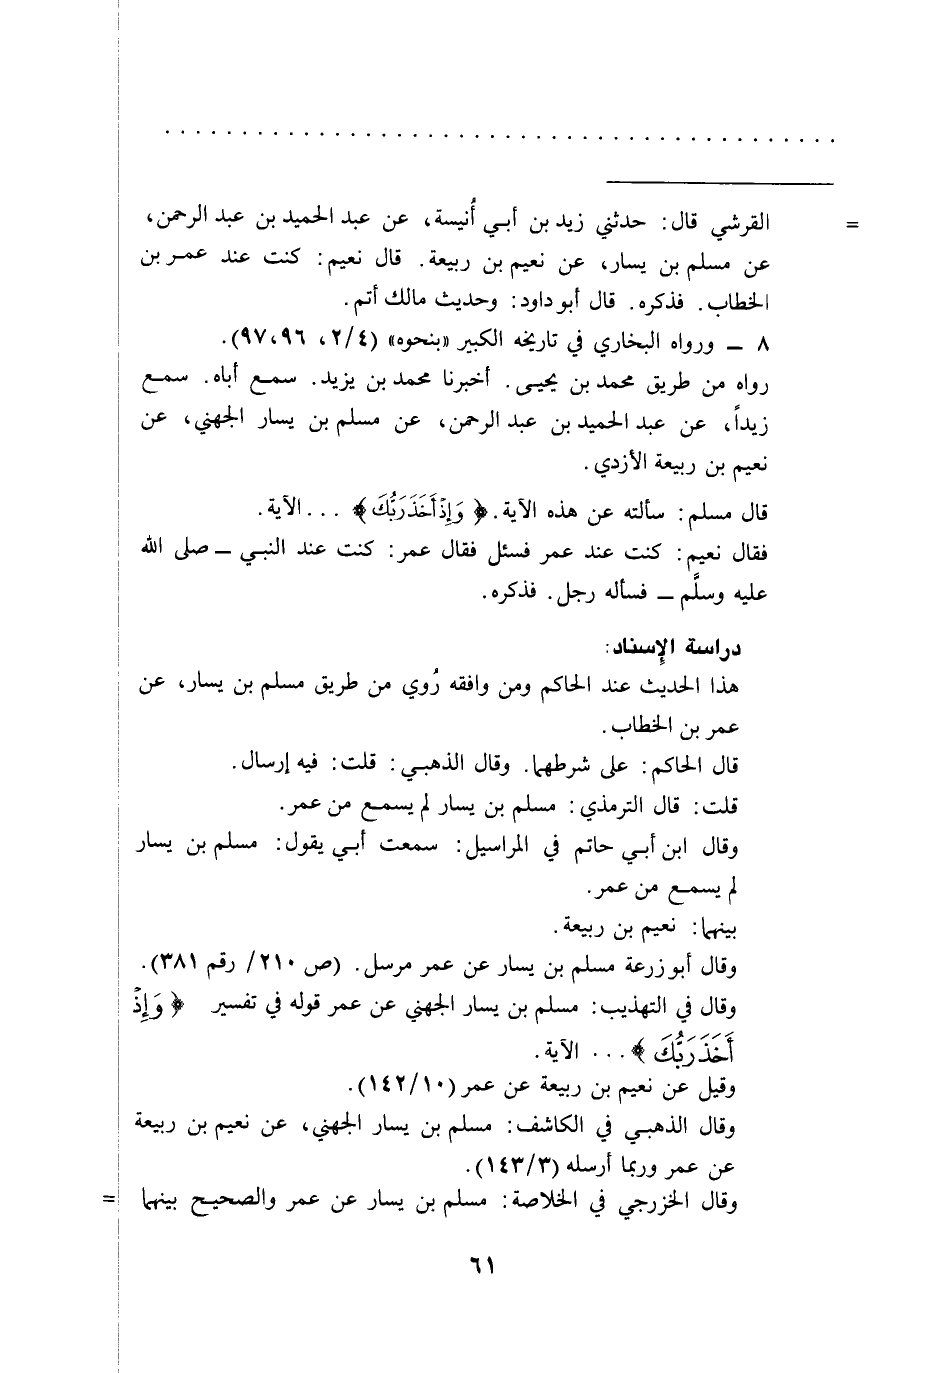 . . . . . . . . . . . . . . . . . . . . . . . . . . . . . . . . . . . . . . . . . . . .
= القرشي قال: حدثني زيد بن أبي أُنيسة، عن عبد الحميد بن عبد الرحمن،
عن مسلم بن يسار، عن نعيم بن ربيعة. قال نعيم: كنت عند عمر بن
الخطاب. فذكره. قال أبو داود: وحديث مالك أتم.
٨ ــ ورواه البخاري في تاريخه الكبير «بنحوه» (٢/٤، ٩٦، ٩٧).
رواه من طريق محمد بن يحيى. أخبرنا محمد بن يزيد. سمع أباه. سمع
زيداً، عن عبد الحميد بن عبد الرحمن، عن مسلم بن يسار الجهني، عن
نعيم بن ربيعة الأزدي.
قال مسلم: سألته عن هذه الآية. ﴿ وَإِذْ أَخَذَ رَبُّكَ ﴾ ... الآية.
فقال نعيم: كنت عند عمر فسئل فقال عمر: كنت عند النبي ــ صلى الله
عليه وسلَّم ــ فسأله رجل. فذكره.
دراسة الإِسناد:
هذا الحديث عند الحاكم ومن وافقه رُوي من طريق مسلم بن يسار، عن
عمر بن الخطاب.
قال الحاكم: على شرطهما. وقال الذهبي: قلت: فيه إرسال.
قلت: قال الترمذي: مسلم بن يسار لم يسمع من عمر.
وقال ابن أبي حاتم في المراسيل: سمعت أبي يقول: مسلم بن يسار
لم يسمع من عمر.
بينهما: نعيم بن ربيعة.
وقال أبو زرعة مسلم بن يسار عن عمر مرسل. (ص ٢١٠/ رقم ٣٨١).
وقال في التهذيب: مسلم بن يسار الجهني عن عمر قوله في تفسير ﴿ وَإِذْ
أَخَذَ رَبُّكَ ﴾ ... الآية.
وقيل عن نعيم بن ربيعة عن عمر (١٤٢/١٠).
وقال الذهبي في الكاشف: مسلم بن يسار الجهني، عن نعيم بن ربيعة
عن عمر وربما أرسله (١٤٣/٣).
وقال الخزرجي في الخلاصة: مسلم بن يسار عن عمر والصحيح بينهما =
٦١